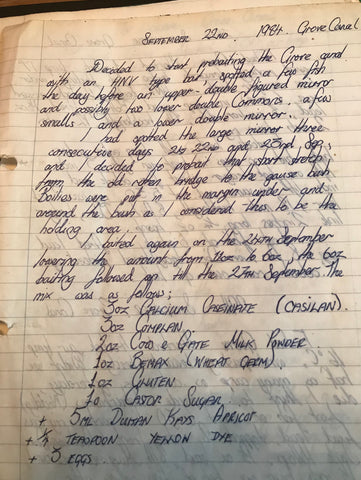 September 22nd 1984. Grove Canal
Decided to start prebaiting the Grove canal
with an HNV type bait, spotted a few fish
the day before an upper double figured mirror
and possibly two lower double Commons. a few
smalls and a lower double mirror.
I had spotted the large mirror three
consecutive days 21st 22nd and 23rd Sep,
and I decided to prebait that short stretch
from the old rotten bridge to the gause bush
Boilies were put in the margin under and
around the bush as I considered this to be the
holding area.
I baited again on the 24th September
lowering the amount from 12oz to 6oz, the 6oz
baiting followed on till the 27th September. The
mix was as follows;
3oz Calcium Caseinate (Casilan).
3oz Complan
2oz Cow & Gate Milk Powder.
1oz Bemax (Wheat Germ).
1oz Gluten
Castor Sugar.
+ 5ml Duncan Kays Apricot
+ Teaspoon Yellow Dye
+ 5 Eggs.